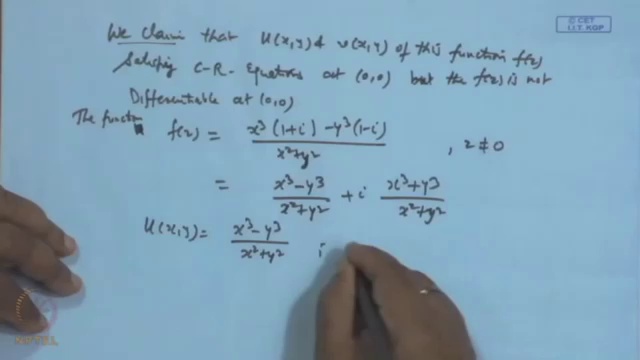 © CET
I.I.T. KGP
We Claim that U(x,y) & v(x,y) of this function f(z)
Satisfying C-R- Equations at (0,0) but the f(z) is not
Differentiable at (0,0)
The function f(z) = x³(1+i) - y³(1-i) / x²+y² , z ≠ 0
= x³-y³ / x²+y² + i x³+y³ / x²+y²
U(x,y) = x³-y³ / x²+y² ;
NPTEL